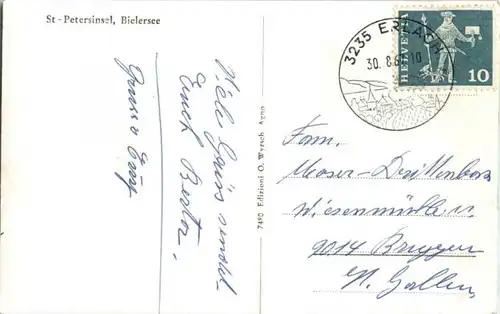 St-Petersinsel, Bielersee
3235 ERLACH
30.8.6 10
HELVETIA
10
Viele Grüsse sendet
Euch
Gruss v.
7490 Edizioni O. Wyrsch, Agno
Fam.
Moser-
Wiesenmühle
9014 Bruggen
St. Gallen